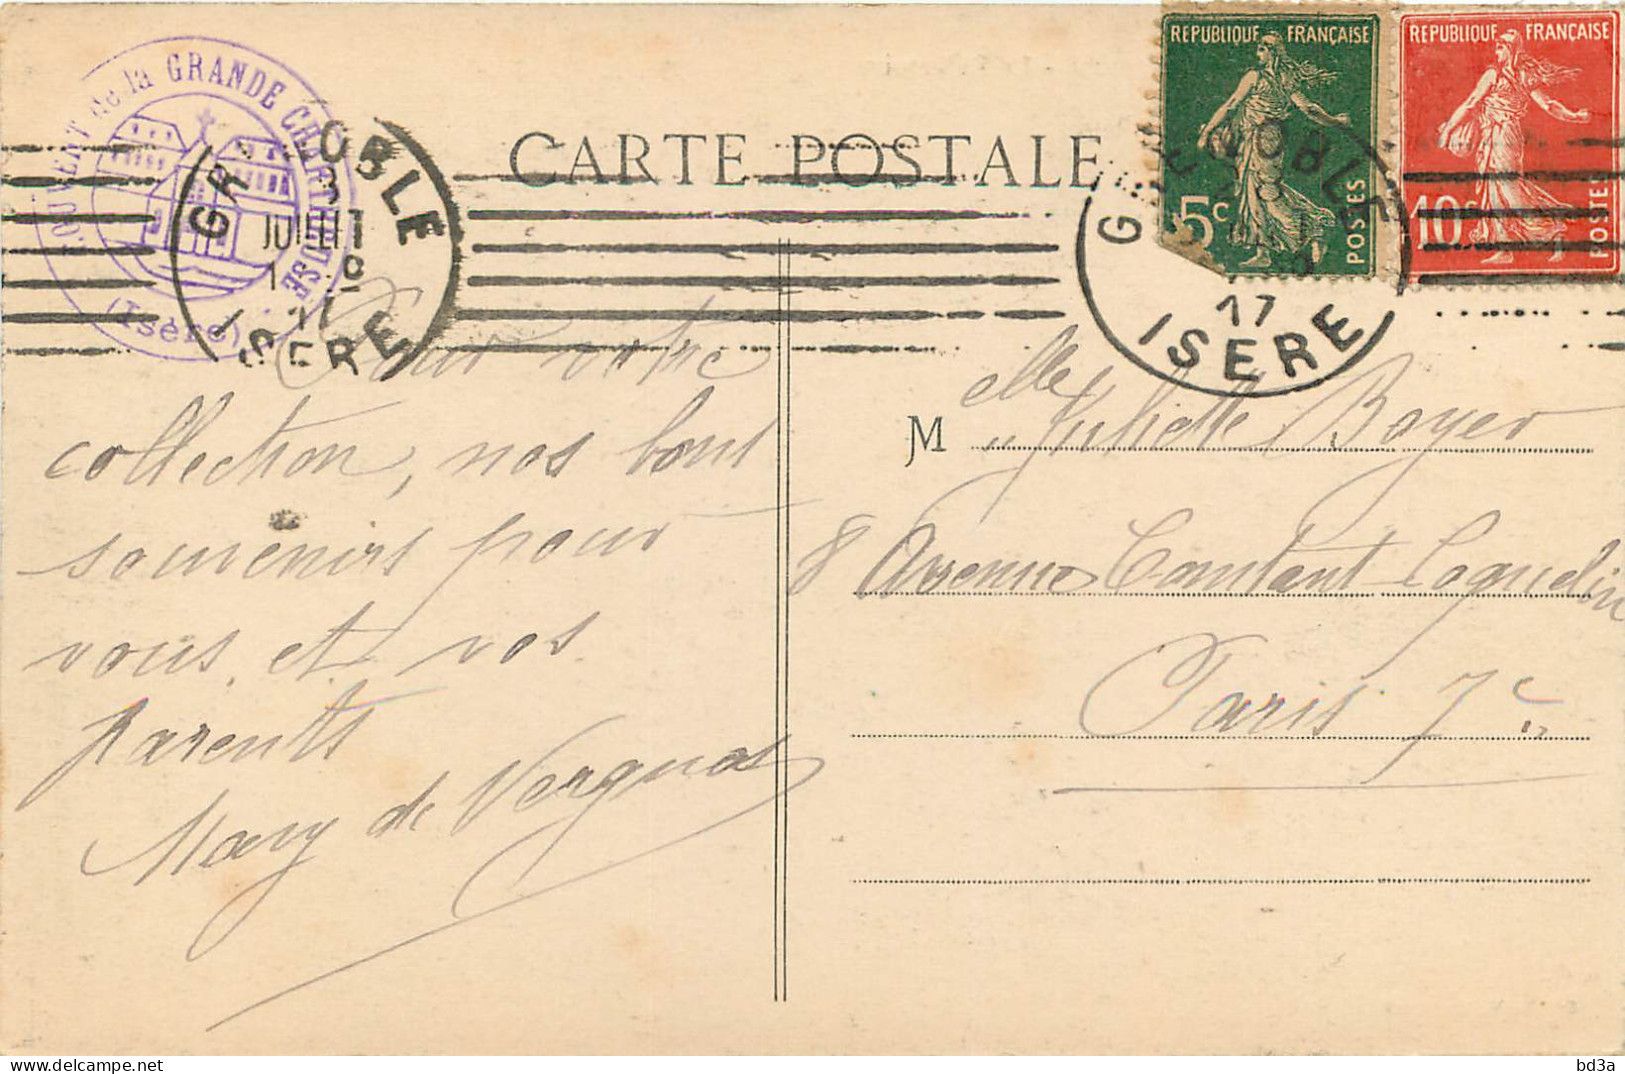 COUVENT de la GRANDE CHARTREUSE
(Isère)
GRENOBLE
JUILLET
17
ISERE
CARTE POSTALE
REPUBLIQUE FRANÇAISE
5c
POSTES
REPUBLIQUE FRANÇAISE
10c
POSTES
GRENOBLE
17
ISERE
Pour votre
collection, nos bons
souvenirs pour
vous et vos
parents
Mary de Vergnas
Melle Juliette Boyer
8 Avenue Constant Coquelin
Paris 7e
bd3a